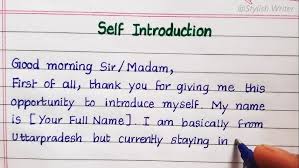 @Stylish Writer
Self Introduction
Good morning Sir/Madam,
First of all, thank you for giving me this
opportunity to introduce myself. My name
is [Your Full Name]. I am basically from
Uttarpradesh but currently staying in